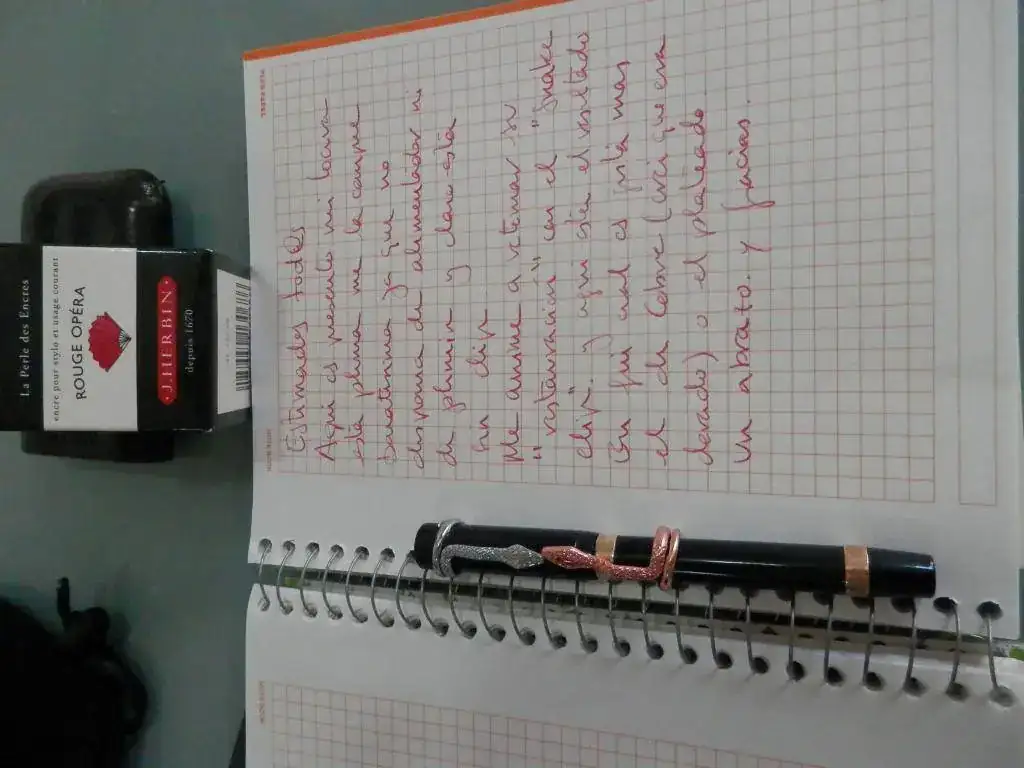 La Perle des Encres
encre pour stylo et usage courant
ROUGE OPÉRA
J. HERBIN
depuis 1670
Estimados todos
Aqui os presento mi locura
esta pluma me la compre
baratinma ya que no
disponia de alimentador ni
de plumin y claro esta
sin clip
Me anime a retomar su
"restauración" con el "snake
clip". y aqui sta el resultado
En fin cual os gusta mas
el de Cobre (creí que era
dorado) o el plateado
un abrazo. y gracias.